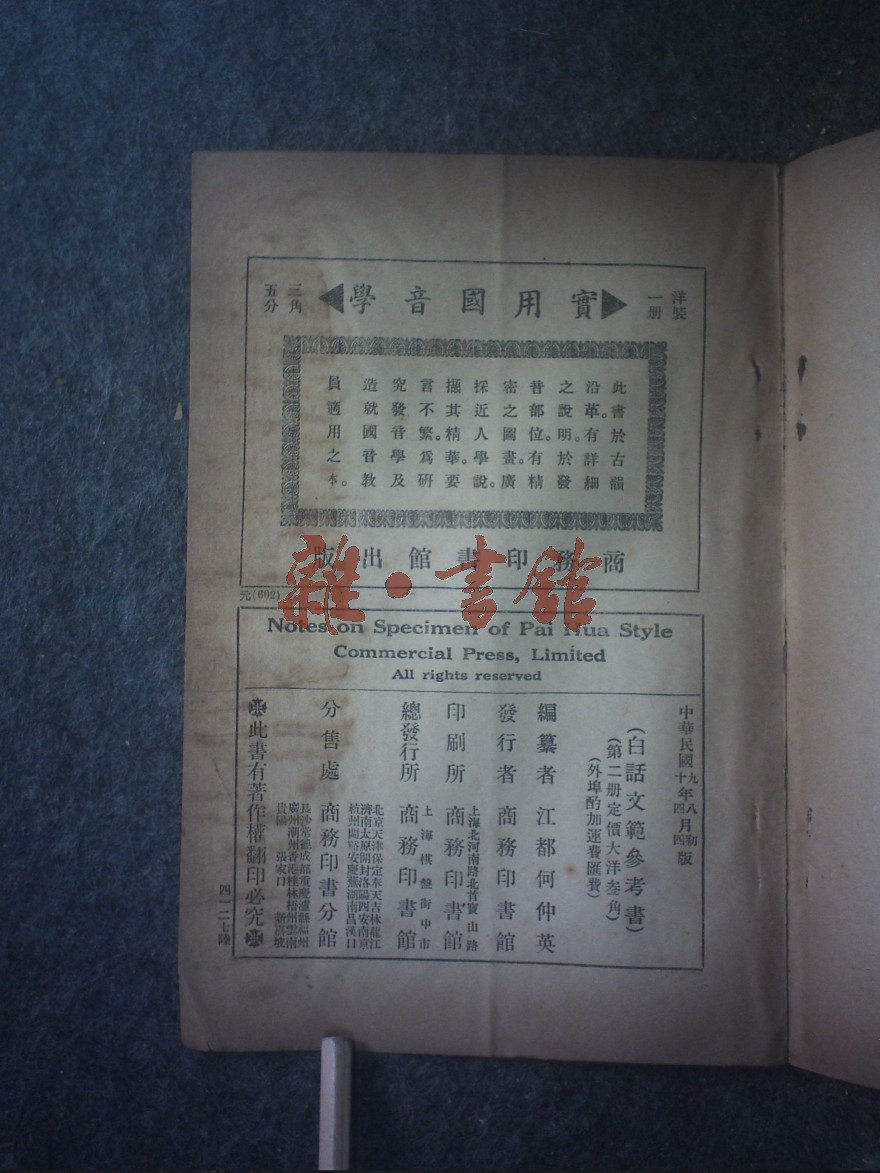 洋裝一册
實用國音學
三角五分
此書於古韻
沿革。有詳細
之說明。於發
音部位。有精
密之圖畫。廣
採近人學說。
擷其精華。要
言不繁。爲研
究發音學及
造就國音教
員適用之本。
商務印書館出版
元(602)
雜·書館
Notes on Specimen of Pai Hua Style
Commercial Press, Limited
All rights reserved
中華民國九年八月初版
十四年四月四版
(白話文範參考書)
(第二册定價大洋叁角)
(外埠酌加運費匯費)
編纂者 江都何仲英
發行者 商務印書館
印刷所 上海北河南路北首寶山路 商務印書館
總發行所 上海棋盤街中市 商務印書館
分售處 商務印書分館
北京天津保定奉天吉林龍江
濟南太原開封洛陽西安南京
杭州蘭谿安慶蕪湖南昌漢口
長沙常德成都重慶瀘縣福州
廣州潮州香港桂林梧州雲南
貴陽 張家口 新嘉坡
此書有著作權翻印必究
四一二七陸